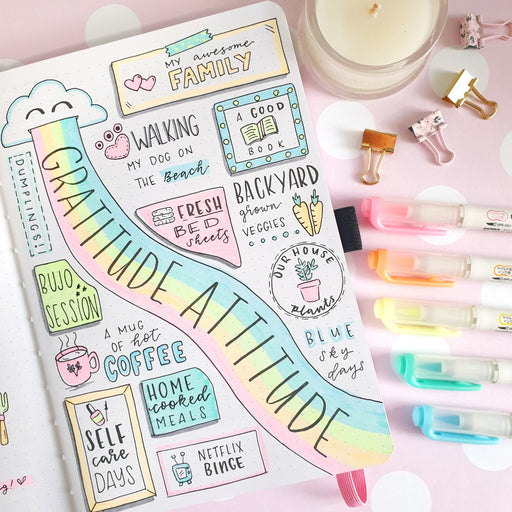 MY awesome
FAMILY
WALKING
MY DOG ON
THE Beach
A GOOD
BOOK
DUMPLINGS!
GRATITUDE ATTITUDE
FRESH
BED
Sheets
BACKYARD
grown
VEGGIES
OUR HOUSE
Plants
BUJO
SESSION
A MUG
OF hot
COFFEE
BLUE
sky
days
HOME
cooked
MEALS
SELF
care
DAYS
NETFLIX
BINGE